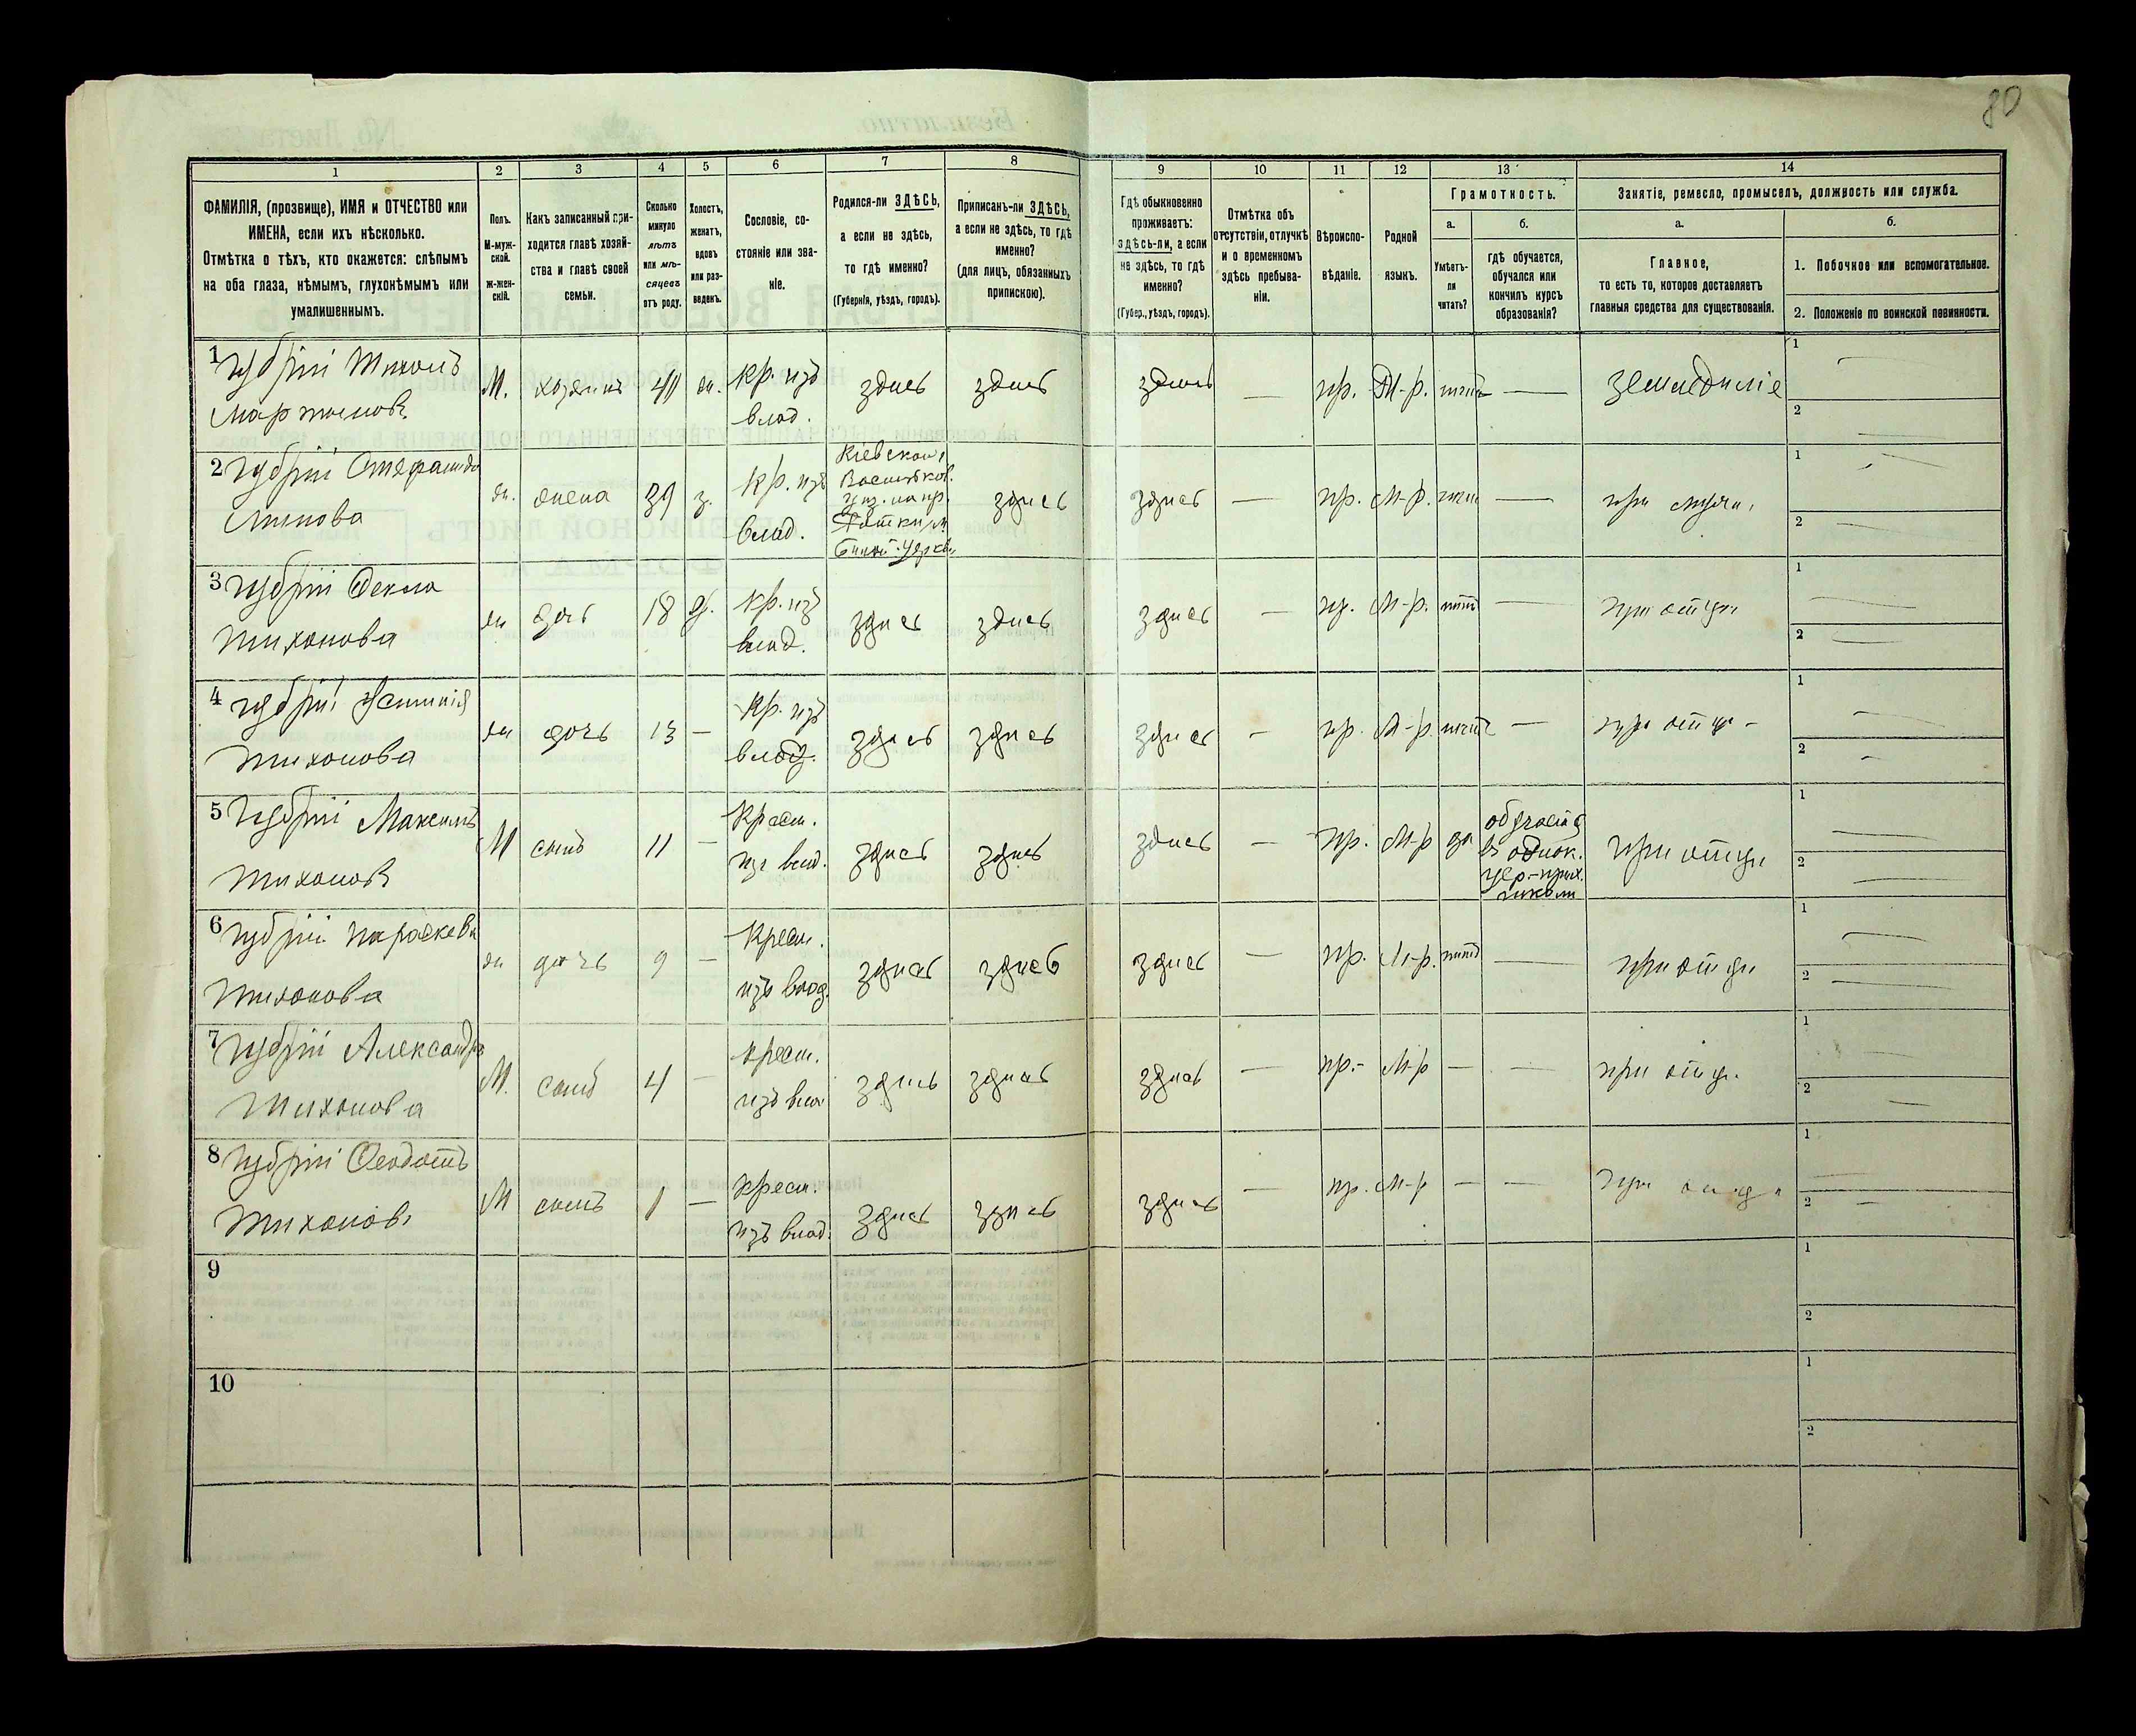 80
1 2 3 4 5 6 7 8 9 10 11 12 13 14
ФАМИЛІЯ, (прозвище), ИМЯ и ОТЧЕСТВО или
ИМЕНА, если ихъ нѣсколько.
Отмѣтка о тѣхъ, кто окажется: слѣпымъ
на оба глаза, нѣмымъ, глухонѣмымъ или
умалишеннымъ.
Полъ.
М-муж-
ской.
ж-жен-
скій.
Какъ записанный при-
ходится главѣ хозяй-
ства и главѣ своей
семьи.
Сколько
минуло
лѣтъ
или мѣ-
сяцевъ
отъ роду.
Холостъ,
женатъ,
вдовъ
или раз-
веденъ.
Сословіе, со-
стояніе или зва-
ніе.
Родился-ли ЗДѢСЬ,
а если не здѣсь,
то гдѣ именно?
(Губернія, уѣздъ, городъ).
Приписанъ-ли ЗДѢСЬ,
а если не здѣсь, то гдѣ
именно?
(для лицъ, обязанныхъ
припискою).
Гдѣ обыкновенно
проживаетъ:
здѣсь-ли, а если
не здѣсь, то гдѣ
именно?
(Губер., уѣздъ, городъ).
Отмѣтка объ
отсутствіи, отлучкѣ
и о временномъ
здѣсь пребыва-
ніи.
Вѣроиспо-
вѣданіе.
Родной
языкъ.
Грамотность.
а.
Умѣетъ-
ли
читать?
б.
гдѣ обучается,
обучался или
кончилъ курсъ
образованія?
Занятіе, ремесло, промыселъ, должность или служба.
а.
Главное,
то есть то, которое доставляетъ
главныя средства для существованія.
б.
1. Побочное или вспомогательное.
2. Положеніе по воинской повинности.
1 Губрій Тихонъ
Мартиновъ
М. хозяинъ 41 ж. кр. изъ
влад.
здись здись здись — пр. М-р. нитъ — земледиліе
1 —
2 —
2 Губрій Стефанида
ж. жена 39 з. кр. изъ
влад.
Кіевской
Васильков.
м.
Билой-Церкви
здись здись — пр. М-р. — при мужи
1 —
2 —
3 Губрій Фекла
Тихонова
жи дочь 18 д. кр. изъ
влад.
здись здись здись — пр. М-р. нитъ — при отци
1 —
2 —
4 Губрій Устинія
Тихонова
жи дочь 13 — кр. изъ
влад.
здись здись здись — пр. М-р. нитъ — при отци
1 —
2 —
5 Губрій Максимъ
Тихоновъ
М сынъ 11 — Крест.
изъ влад.
здись здись здись — пр. М-р да
обучаеться
въ однок.
цер-прих.
школи
при отци
1 —
2 —
6 Губрій Параскева
Тихонова
жи дочь 9 — Крест.
изъ влад.
здись здись здись — пр. М-р. нитъ — при отци
1 —
2 —
7 Губрій Александръ
Тихонова
М. сынъ 4 — крест.
изъ вла
здись здись здись — пр.- М-р — — при отци
1 —
2 —
8 Губрій Феодотъ
Тихоновъ
М сынъ 1 — крест.
изъ влад.
здись здись здись — пр. М-р — — при отци
1 —
2 —
9
1
2
10
1
2